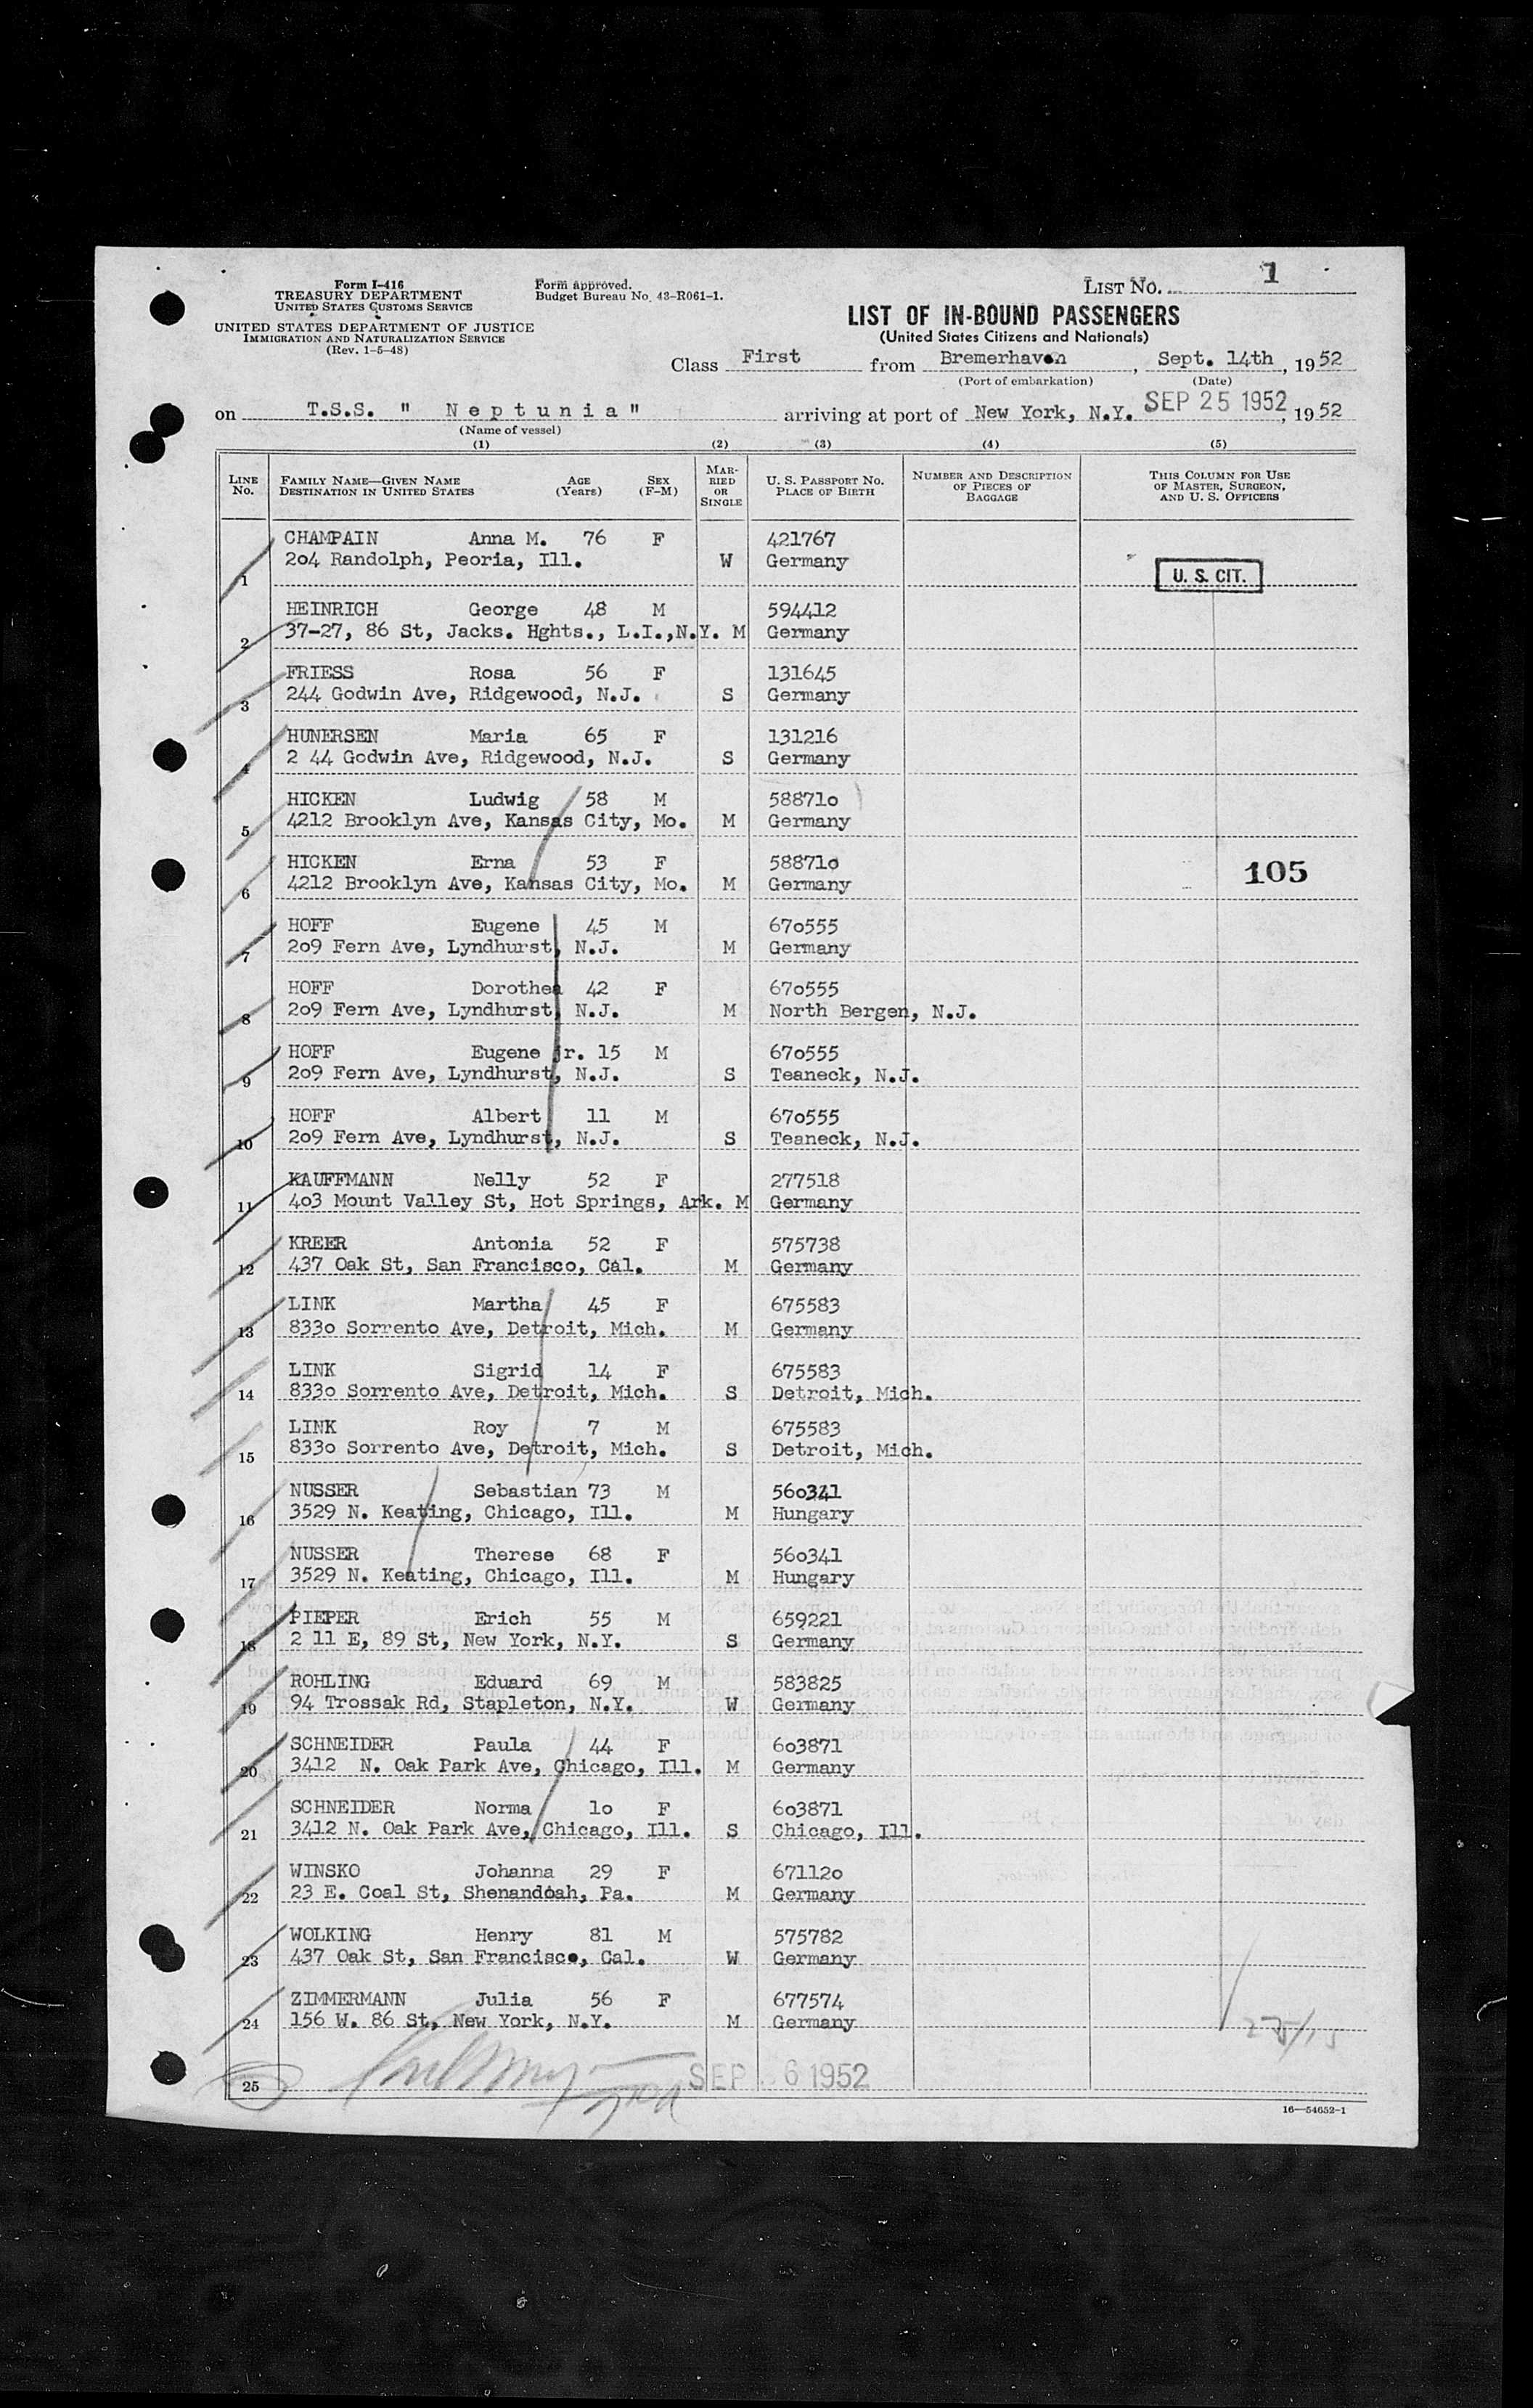 Form I-416
TREASURY DEPARTMENT
UNITED STATES CUSTOMS SERVICE
UNITED STATES DEPARTMENT OF JUSTICE
IMMIGRATION AND NATURALIZATION SERVICE
(Rev. 1-5-48)
Form approved.
Budget Bureau No. 43-R061-1.
LIST NO. 1
LIST OF IN-BOUND PASSENGERS
(United States Citizens and Nationals)
Class First from Bremerhaven, Sept. 14th, 1952
(Port of embarkation) (Date)
on T.S.S. " Neptunia" arriving at port of New York, N.Y. SEP 25 1952, 1952
(Name of vessel)
(1) (2) (3) (4) (5)
LINE NO. FAMILY NAME—GIVEN NAME DESTINATION IN UNITED STATES AGE (Years) SEX (F-M) MARRIED OR SINGLE U. S. PASSPORT NO. PLACE OF BIRTH NUMBER AND DESCRIPTION OF PIECES OF BAGGAGE THIS COLUMN FOR USE OF MASTER, SURGEON, AND U. S. OFFICERS
CHAMPAIN Anna M. 76 F 421767
1 204 Randolph, Peoria, Ill. W Germany U. S. CIT.
HEINRICH George 48 M 594412
2 37-27, 86 St, Jacks. Hghts., L.I.,N.Y. M Germany
FRIESS Rosa 56 F 131645
3 244 Godwin Ave, Ridgewood, N.J. S Germany
HUNERSEN Maria 65 F 131216
4 2 44 Godwin Ave, Ridgewood, N.J. S Germany
HICKEN Ludwig 58 M 58871o
5 4212 Brooklyn Ave, Kansas City, Mo. M Germany
HICKEN Erna 53 F 58871o
6 4212 Brooklyn Ave, Kansas City, Mo. M Germany 105
HOFF Eugene 45 M 67o555
7 2o9 Fern Ave, Lyndhurst, N.J. M Germany
HOFF Dorothea 42 F 67o555
8 2o9 Fern Ave, Lyndhurst, N.J. M North Bergen, N.J.
HOFF Eugene jr. 15 M 67o555
9 2o9 Fern Ave, Lyndhurst, N.J. S Teaneck, N.J.
HOFF Albert 11 M 67o555
10 2o9 Fern Ave, Lyndhurst, N.J. S Teaneck, N.J.
KAUFFMANN Nelly 52 F 277518
11 4o3 Mount Valley St, Hot Springs, Ark. M Germany
KREER Antonia 52 F 575738
12 437 Oak St, San Francisco, Cal. M Germany
LINK Martha 45 F 675583
13 833o Sorrento Ave, Detroit, Mich. M Germany
LINK Sigrid 14 F 675583
14 833o Sorrento Ave, Detroit, Mich. S Detroit, Mich.
LINK Roy 7 M 675583
15 833o Sorrento Ave, Detroit, Mich. S Detroit, Mich.
NUSSER Sebastian 73 M 56o341
16 3529 N. Keating, Chicago, Ill. M Hungary
NUSSER Therese 68 F 56o341
17 3529 N. Keating, Chicago, Ill. M Hungary
PIEPER Erich 55 M 659221
18 2 11 E, 89 St, New York, N.Y. S Germany
ROHLING Eduard 69 M 583825
19 94 Trossak Rd, Stapleton, N.Y. W Germany
SCHNEIDER Paula 44 F 6o3871
20 3412 N. Oak Park Ave, Chicago, Ill. M Germany
SCHNEIDER Norma 1o F 6o3871
21 3412 N. Oak Park Ave, Chicago, Ill. S Chicago, Ill.
WINSKO Johanna 29 F 67112o
22 23 E. Coal St, Shenandoah, Pa. M Germany
WOLKING Henry 81 M 575782
23 437 Oak St, San Francisco, Cal. W Germany
ZIMMERMANN Julia 56 F 677574
24 156 W. 86 St, New York, N.Y. M Germany
25 SEP 6 1952
16—54652-1